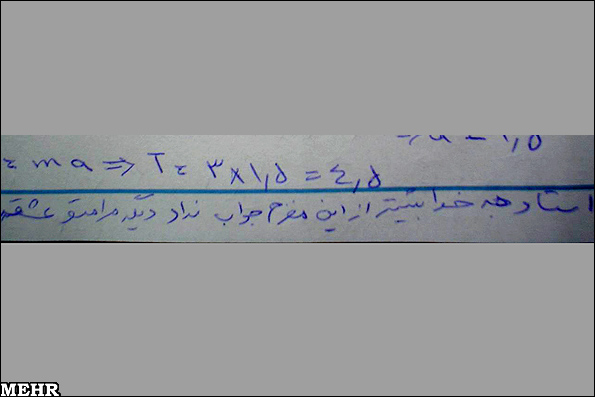 ⇒ a = ۱٫۵
= ma ⇒ T = ۳×۱٫۵ = ٤٫۵
استاد به خدا بیشتر از این مخم جواب نداد دیگه مرامتو عشقه
MEHR